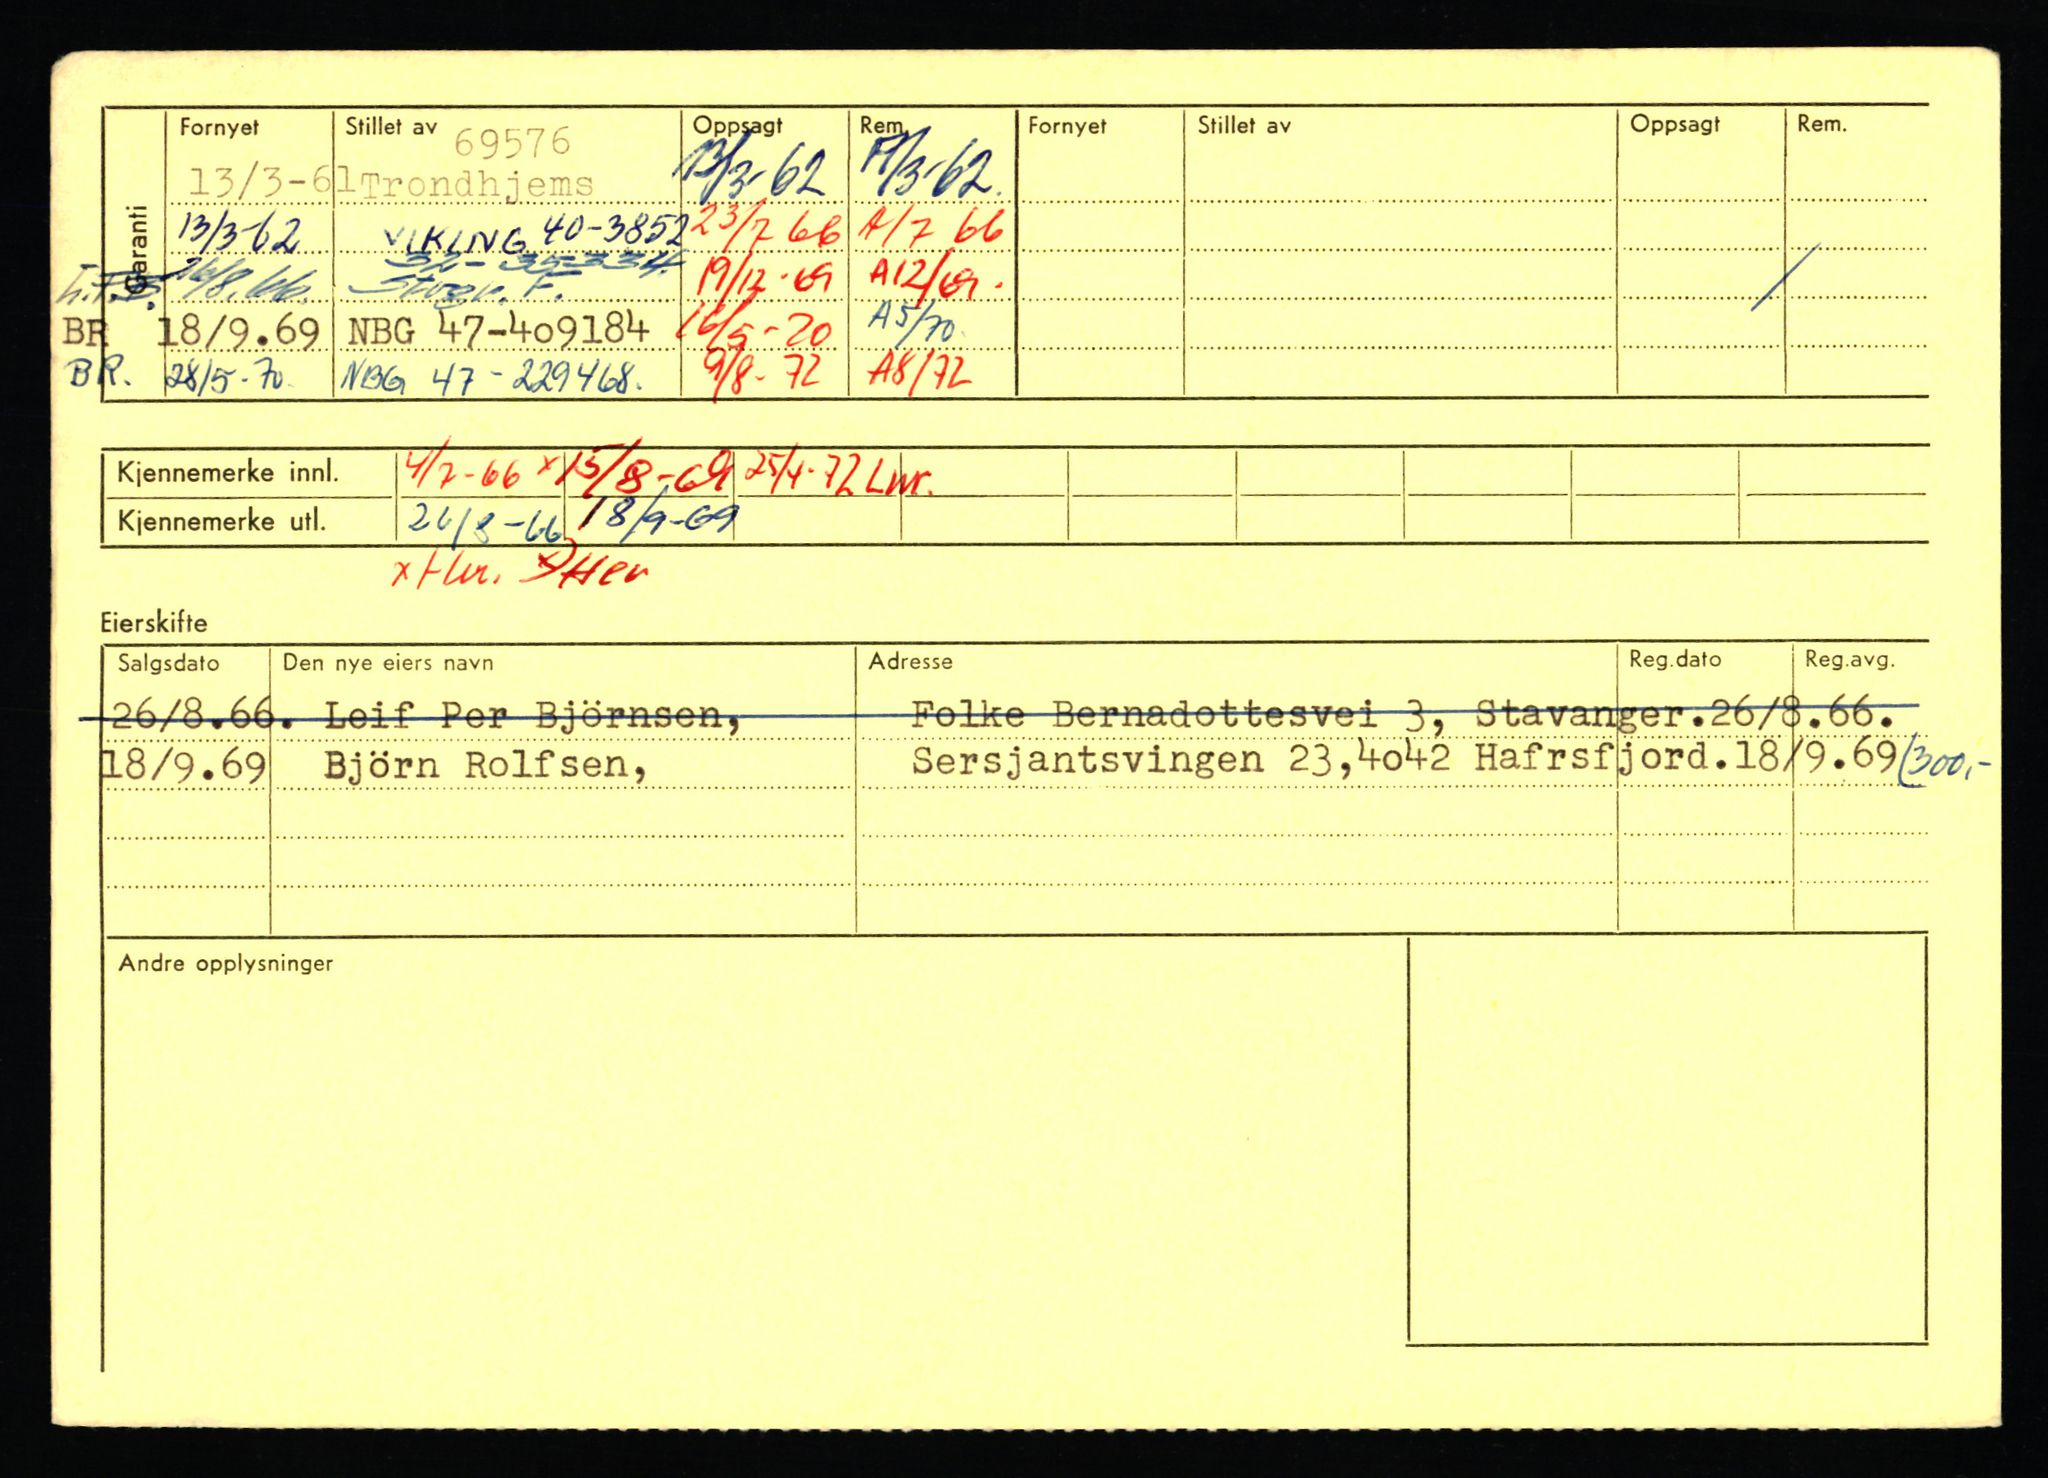 Garanti Fornyet Stillet av Oppsagt Rem. Fornyet Stillet av Oppsagt Rem.
69576
13/3-61 Trondhjems 13/3-62 A/3-62.
13/3-62 VIKING 40-3852 23/7 66 A/7 66
26/8.66. 32-35-334 19/12-69 A12/69.
Stvgr. F.
BR 18/9.69 NBG 47-4o9184 16/5-70 A5/70.
BR. 28/5-70. NBG 47-229468. 9/8-72 A8/72
Kjennemerke innl. 4/7-66 x 15/8-69 25/4-72 Lwr.
Kjennemerke utl. 26/8-66 18/9-69
Eierskifte
Salgsdato Den nye eiers navn Adresse Reg.dato Reg.avg.
26/8.66. Leif Per Björnsen, Folke Bernadottesvei 3, Stavanger. 26/8.66.
18/9.69 Björn Rolfsen, Sersjantsvingen 23,4o42 Hafrsfjord. 18/9.69 (300,-
Andre opplysninger